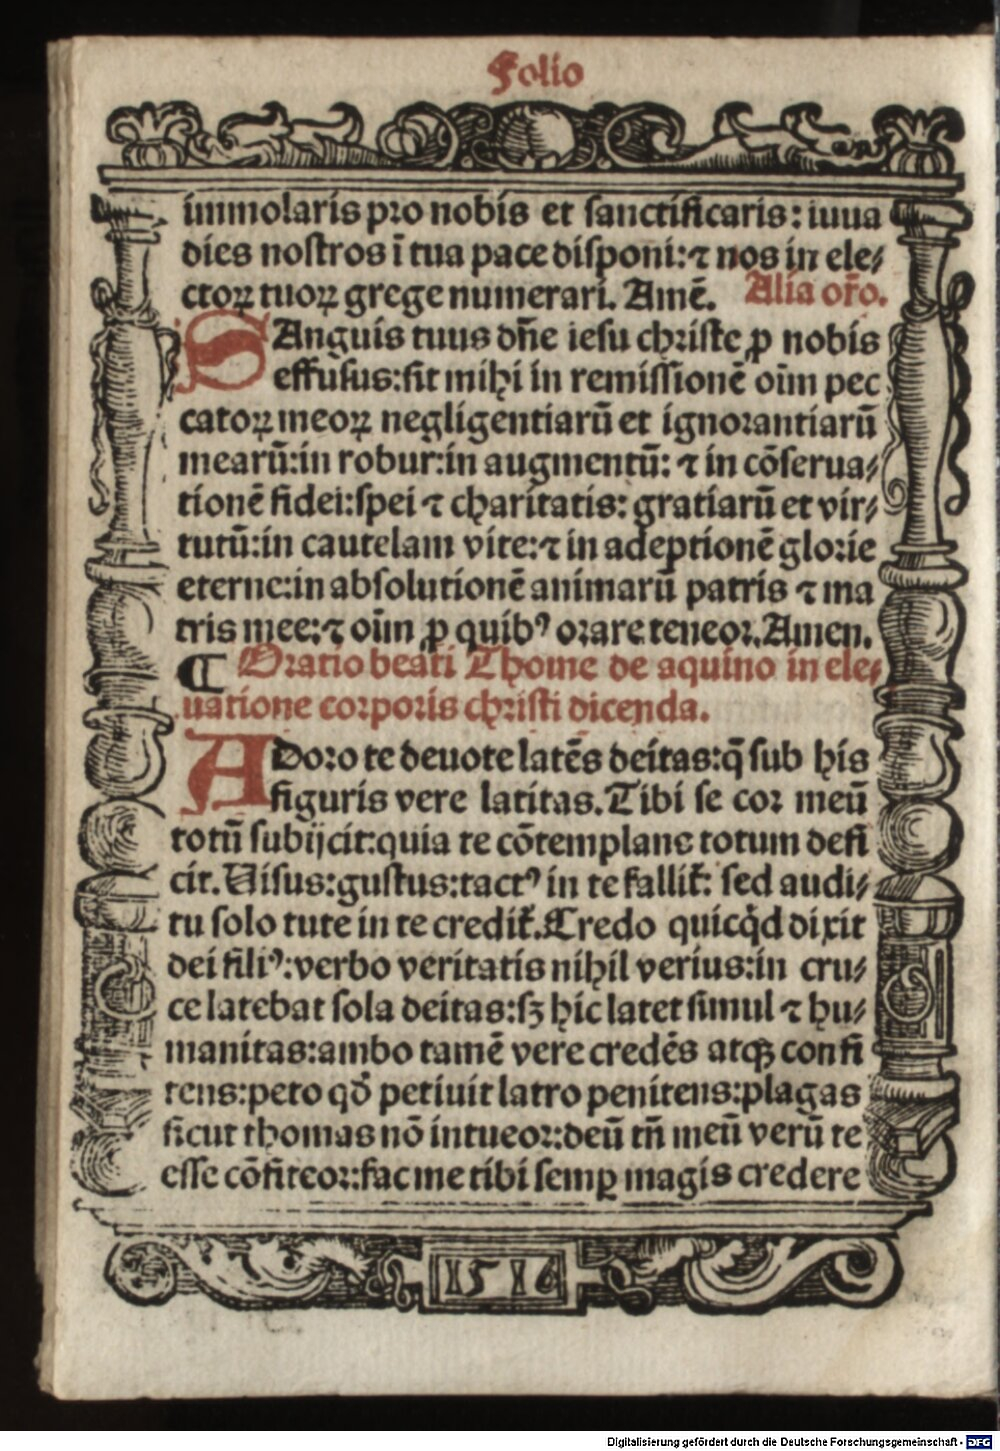 Folio
immolaris pro nobis et sanctificaris: iuua
dies nostros ī tua pace disponi:⁊ nos in ele⸗
ctoꝝ tuoꝝ grege numerari. Amē. Alia or̄o.
SAnguis tuus dn̄e iesu christe ꝓ nobis
effusus:sit mihi in remissionē oīm pec
catoꝝ meoꝝ negligentiarū et ignorantiarū
mearū:in robur:in augmentū: ⁊ in cōserua⸗
tionē fidei:spei ⁊ charitatis: gratiarū et vir⸗
tutū:in cautelam vite:⁊ in adeptionē glorie
eterne:in absolutionē animarū patris ⁊ ma
tris mee:⁊ oīm ꝓ quibꝰ orare teneor. Amen.
¶ Oratio beati Thome de aquino in ele⸗
uatione corporis christi dicenda.
ADoro te deuote latēs deitas:q̄ sub his
figuris vere latitas. Tibi se cor meū
totū subijcit:quia te cōtemplans totum defi
cit. Uisus:gustus:tactꝰ in te fallit̄: sed audi⸗
tu solo tute in te credit̄. Credo quicq̄d dixit
dei filiꝰ:verbo veritatis nihil verius:in cru⸗
ce latebat sola deitas:sꝫ hic latet simul ⁊ hu⸗
manitas:ambo tamē vere credēs atqꝫ confi
tens:peto qd̄ petiuit latro penitens:plagas
sicut thomas nō intueor:deū tn̄ meū verū te
esse cōfiteor:fac me tibi semꝑ magis credere
1516
Digitalisierung gefördert durch die Deutsche Forschungsgemeinschaft - DFG